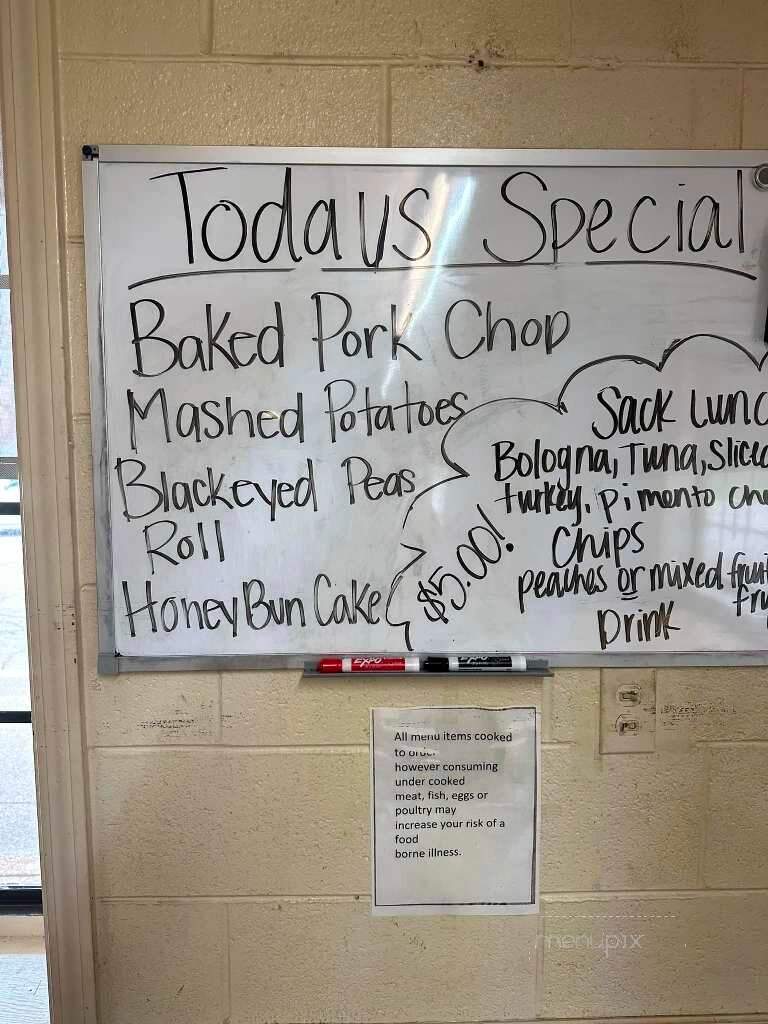 Todays Special
Baked Pork Chop
Mashed Potatoes
Blackeyed Peas
Roll
Honey Bun Cake
Sack Lunc
Bologna, Tuna, Sliced
turkey, pimento che
Chips
peaches or mixed fruit
fru
Drink
$5.00!
EXPO
All menu items cooked
to order
however consuming
under cooked
meat, fish, eggs or
poultry may
increase your risk of a
food
borne illness.
menupix